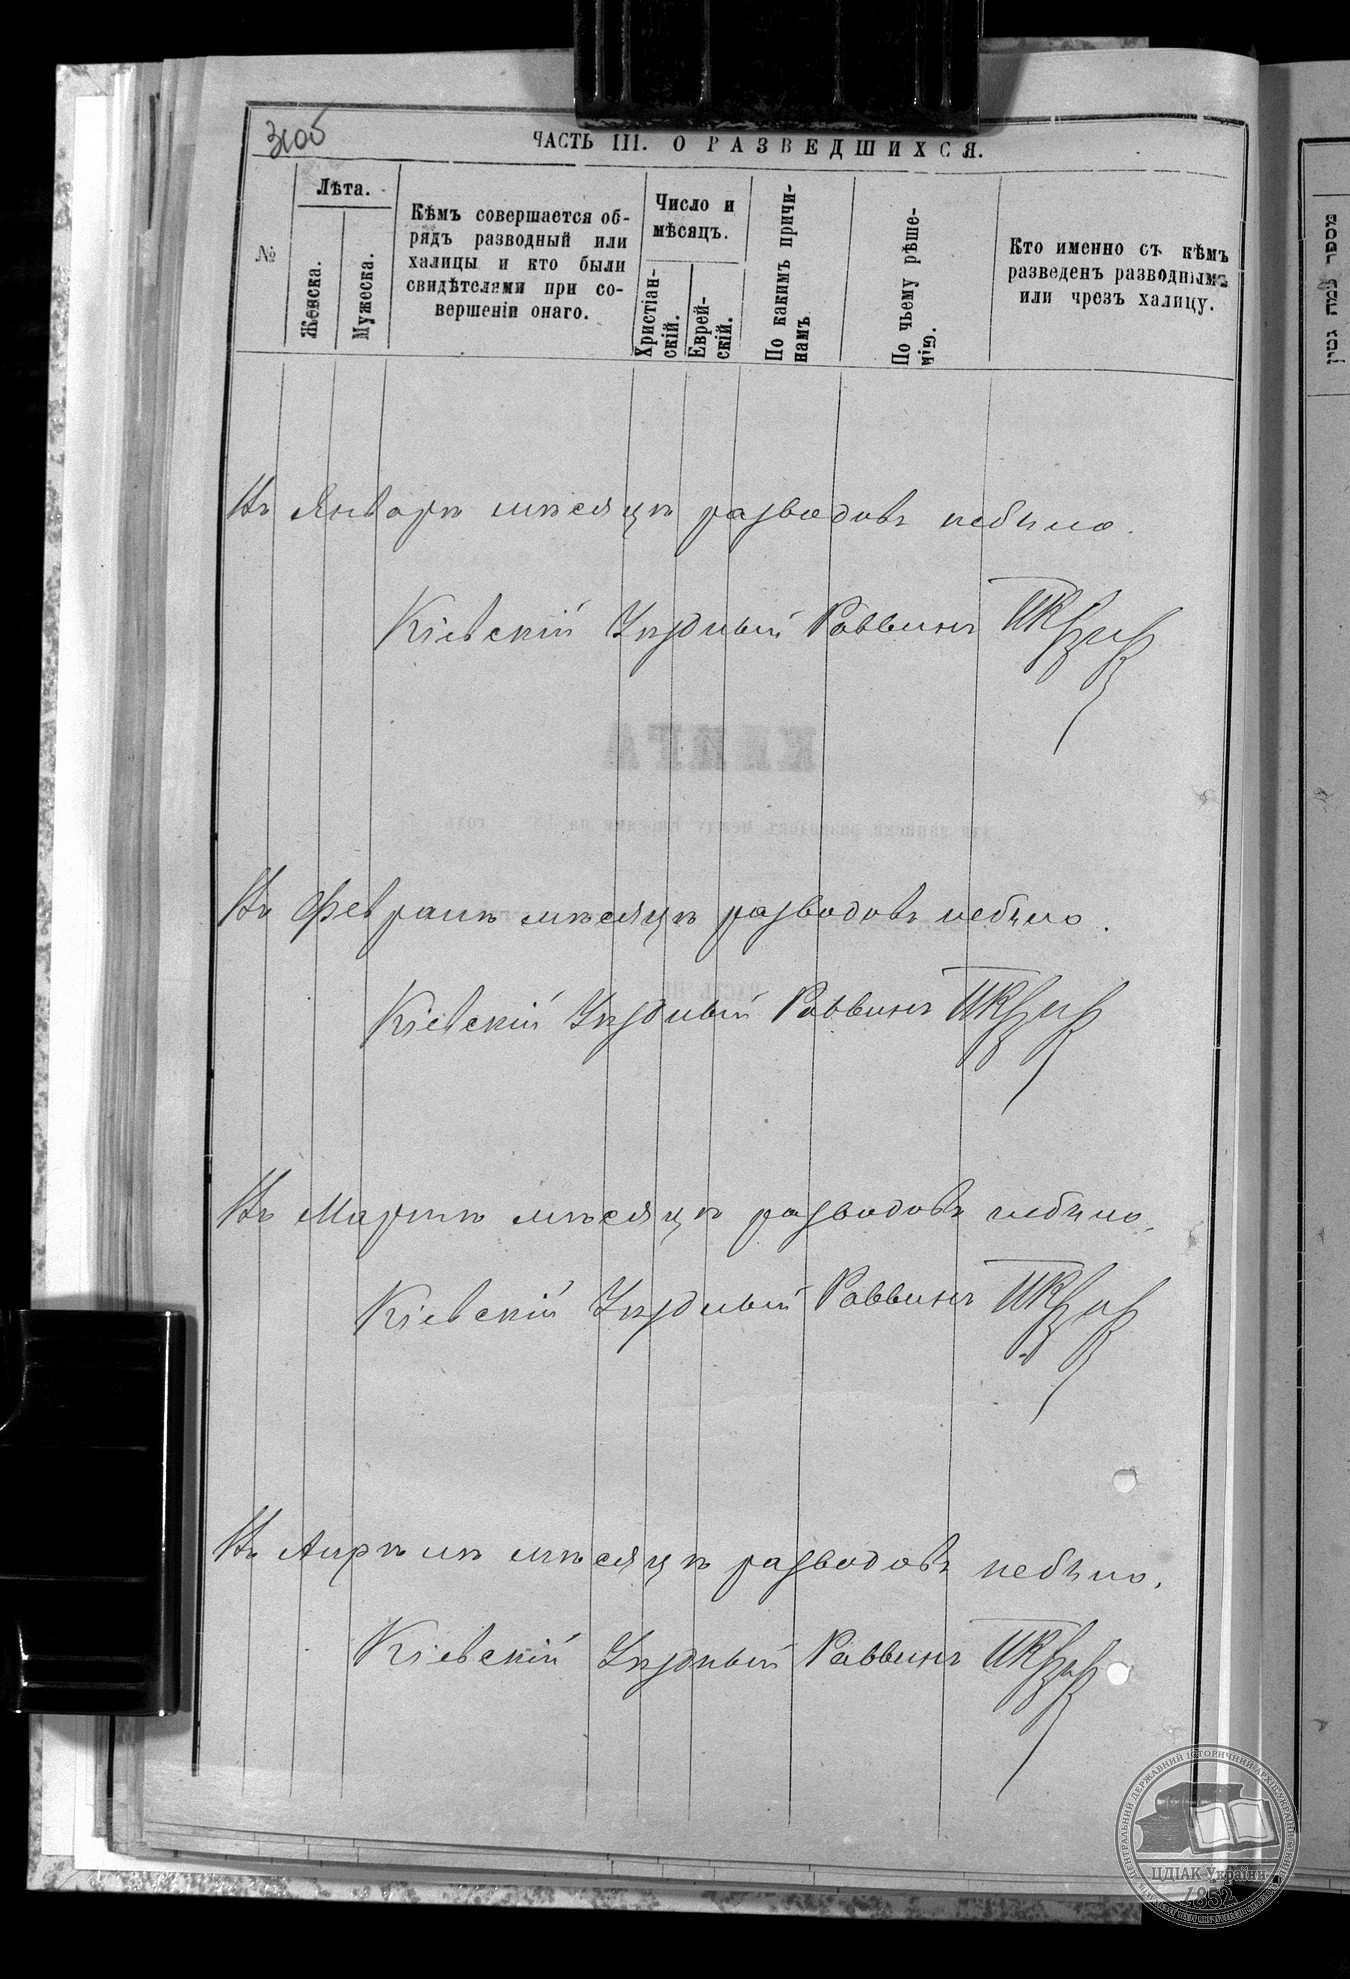 ЧАСТЬ III. О РАЗВЕДШИХСЯ.
№
Лѣта.
Женска.
Мужеска.
Кѣмъ совершается об-
рядъ разводный или
халицы и кто были
свидѣтелями при со-
вершеніи онаго.
Число и
мѣсяцъ.
Христіан-
скій.
Еврей-
скій.
По какимъ причи-
намъ.
По чьему рѣше-
нію.
Кто именно съ кѣмъ
разведенъ разводнымъ
или чрезъ халицу.
Въ Январѣ мѣсяцѣ разводовъ небыло.
Кіевскій Уѣздный Раввинъ
КНИГА
для записки разводовъ между Евреями на 18 годъ
Въ Февралѣ мѣсяцѣ разводовъ небыло.
Кіевскій Уѣздный Раввинъ
ЧАСТЬ III
Въ Мартѣ мѣсяцѣ разводовъ небыло.
Кіевскій Уѣздный Раввинъ
Въ Апрѣлѣ мѣсяцѣ разводовъ небыло.
Кіевскій Уѣздный Раввинъ
מספר כמה גטין
ЦЕНТРАЛЬНИЙ ДЕРЖАВНИЙ ІСТОРИЧНИЙ АРХІВ УКРАЇНИ
ЦДІАК України
1852